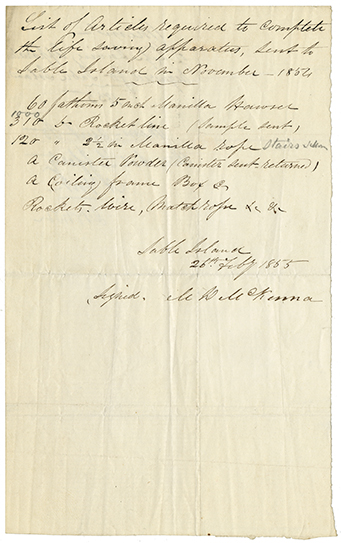 List of Articles required to complete
the life saving apparatus, sent to
Sable Island in November - 1854
60 fathoms 5 inch Manilla Hawser
1000
310 do Rocket line (Sample sent)
120 " 2½ in Manilla rope Stairs
A Canister Powder (Canister sent returned)
A Coiling frame Box &
Rockets, Wire, Match rope &c &c
Sable Island
26th Feby 1855
Signed. M D McKenna